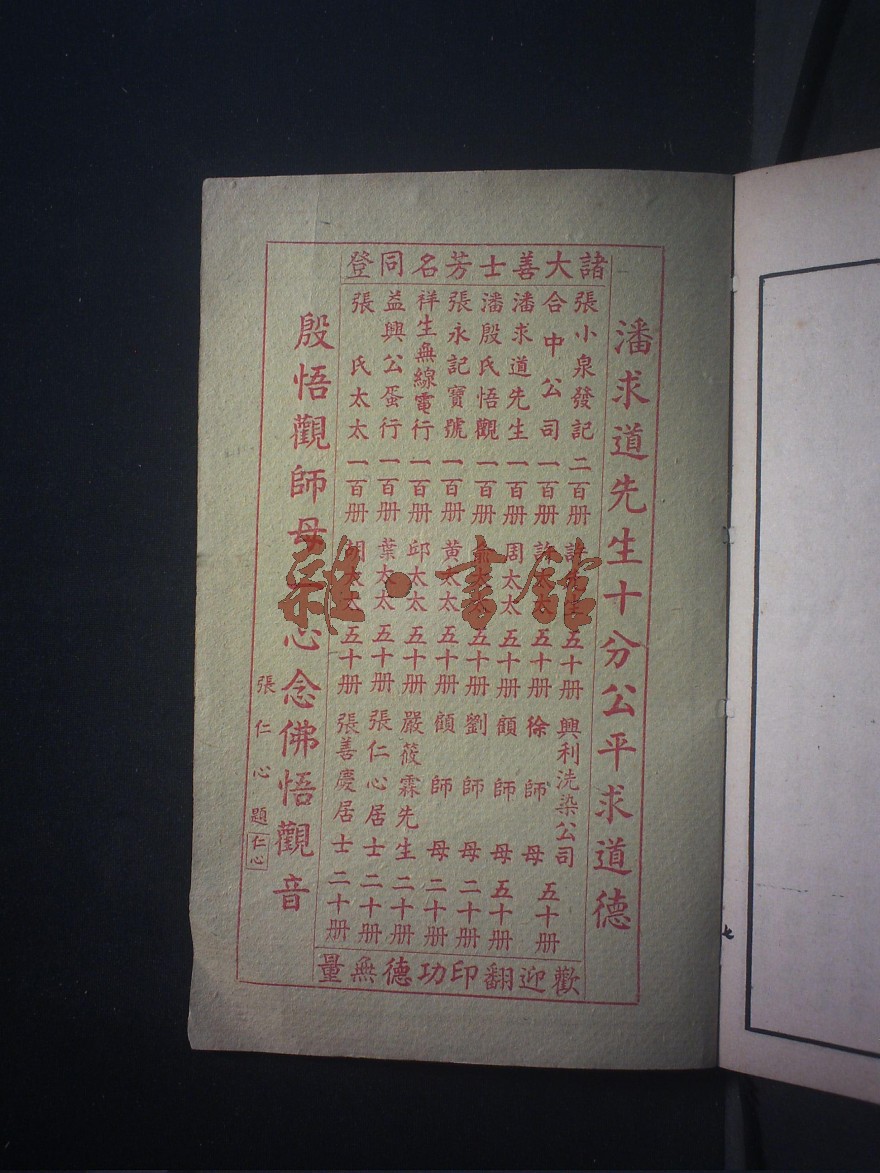 諸大善士芳名同登
潘求道先生十分公平求道德
張小泉發記 二百册
合中公司 一百册
潘求道先生 一百册
潘殷氏悟觀 一百册
張永記寶號 一百册
祥生無線電行 一百册
益興公蛋行 一百册
張氏太太 一百册
五十册
太太 五十册
周太太 五十册
太太 五十册
黄太太 五十册
邱太太 五十册
葉太太 五十册
太太 五十册
興利洗染公司
徐師母 五十册
顧師母 五十册
劉師母 二十册
顧師母 二十册
嚴筱霖先生 二十册
張仁心居士 二十册
張善慶居士 二十册
殷悟觀師母心念佛悟觀音
張仁心題
仁心
歡迎翻印功德無量
雜·書館